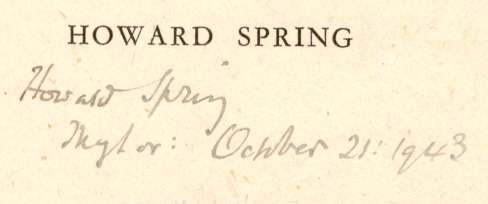 HOWARD SPRING
Howard Spring
Mylor: October 21: 1943